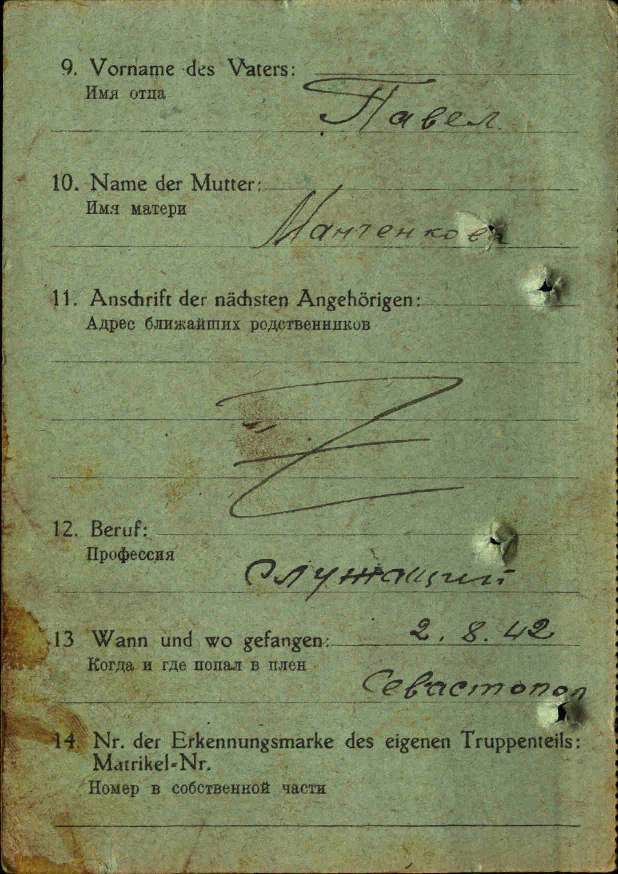 9. Vorname des Vaters:
Имя отца
Павел
10. Name der Mutter:
Имя матери
Манченкова
11. Anschrift der nächsten Angehörigen:
Адрес ближайших родственников
12. Beruf:
Профессия
Служащий
13 Wann und wo gefangen: 2. 8. 42
Когда и где попал в плен
Севастопол
14. Nr. der Erkennungsmarke des eigenen Truppenteils:
Matrikel-Nr.
Номер в собственной части